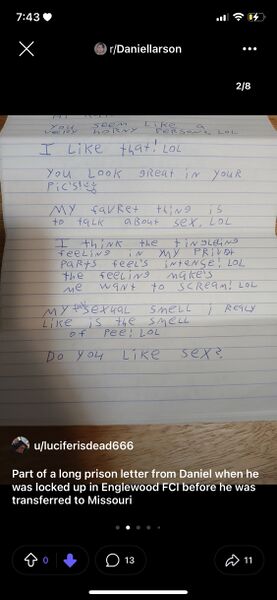 7:43
r/Daniellarson
2/8
you seem like a
very horny person. LOL
I Like that! LOL
you Look great in your
pic's!
my favret thing is
to talk about sex. LOL
I think the tingleing
feeling in my privat
parts feel's intense! LOL
the feeling make's
me want to scream! LOL
my fav sexual smell i realy
like is the smell
of pee! LOL
Do you like sex?
u/luciferisdead666
Part of a long prison letter from Daniel when he
was locked up in Englewood FCI before he was
transferred to Missouri
0
13
11